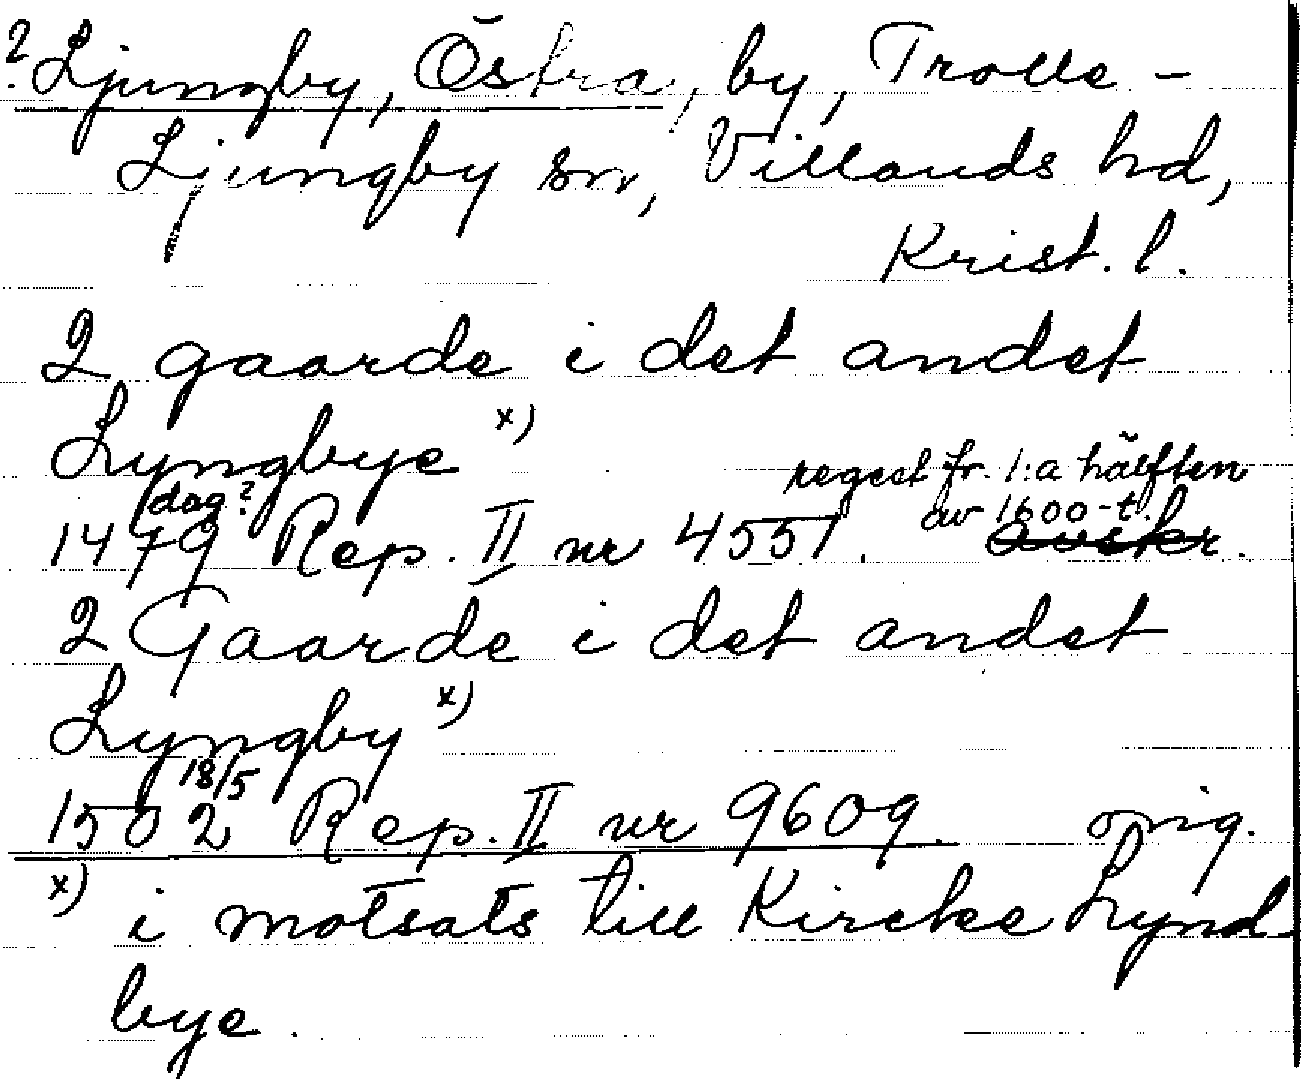 ? Ljungby, Östra, by, Trolle-
Ljungby sn, Villands hd,
Krist. l.
2 gaarde i det andet
Lyngbye x)
regest fr. 1:a hälften
av 1600-t.
dag?
1479 Rep. II nr 4551. avskr.
2 Gaarde i det andet
Lyngby x)
18/5
1502 Rep. II nr 9609. orig.
x) i motsats till Kircke Lynd
bye.